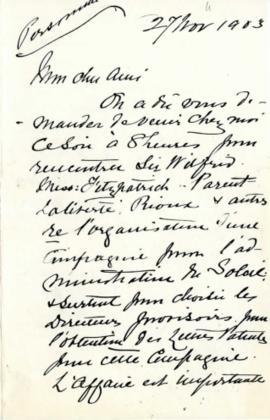 Personnel
27 Nov 1903
Mon cher Ami
On a dû vous de-
mander de venir chez moi
ce soir à 8 heures pour
rencontrer Sir Wilfrid.
Miss: Fitzpatrick.. Parent
Laliberté, Rioux & autres
re l'organisation d'une
Compagnie pour l'ad
ministration du Soleil,
& surtout pour choisir les
Directeurs provisoires pour
l'obtention des Lettres Patentes
pour cette Compagnie.
L'Affaire est importante